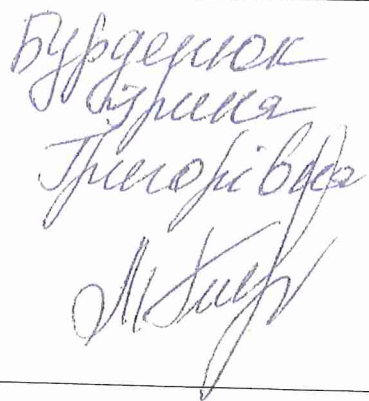 Бурденюк
Ірина
Григорівна